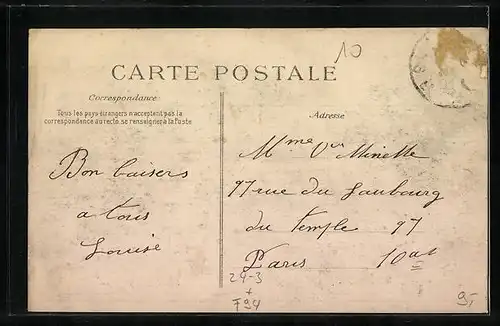 10
CARTE POSTALE
Correspondance
Tous les pays étrangers n'acceptent pas la
correspondance au recto, se renseigner à la Poste
Bon baisers
a tous
Louise
Adresse
Mme Vve Minette
97 rue du Faubourg
du Temple 97
Paris 10at
24-3
+
F94
9,-